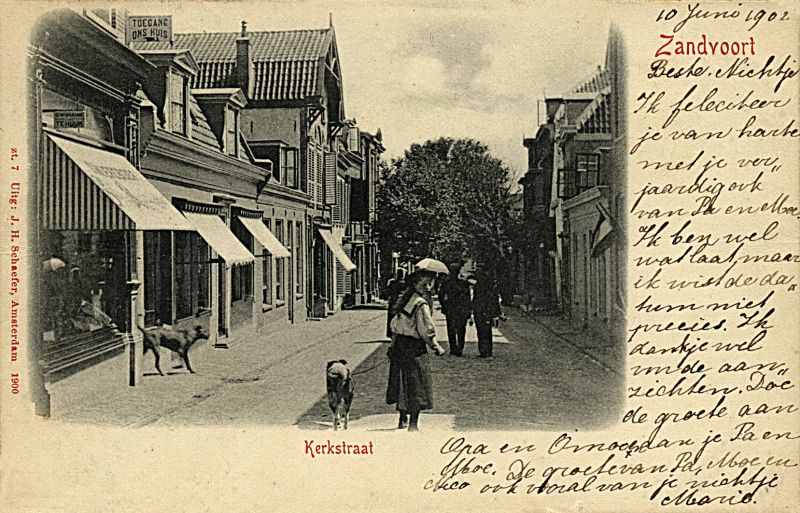 TOEGANG
ONS HUIS
TE HUUR
zt. 7 Uitg: J. H. Schaefer, Amsterdam 1900
Kerkstraat
10 Juni 1902
Zandvoort
Beste Nichtje
Ik feleciteer
je van harte
met je ver„
jaardig ook
van Pa en Moe.
Ik ben wel
wat laat, maar
ik wist de da„
tum niet
precies. Ik
dank je wel
de aan„
zichten. Doe
de groete aan
Opa en Omoe, aan je Pa en
Moe. De groete van Pa, Moe en
Nico ook vooral van je nichtje
Marie.